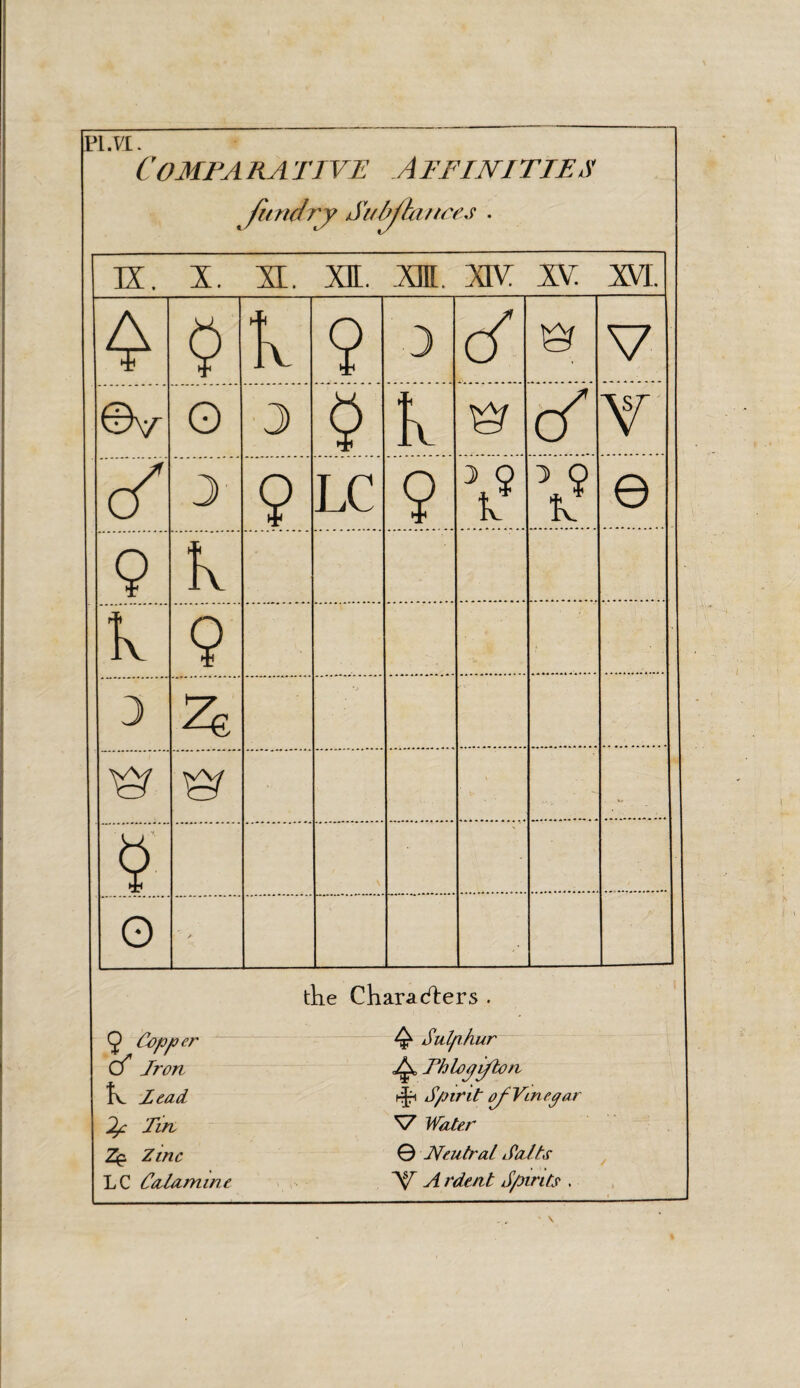 Pl.VI.
COMPARATIVE AFFINITIES
ſundry Subſtances .
IX. X. XI. XII. XIII. XIV. XV. XVI.
🜍 ☿ ♄ ♀ ☽ ♂ ♁ ▽
⊖v ☉ ☽ ☿ ♄ ♂
♂ ☽ ♀ LC ♀ ☽♀♄ ☽♀♄ ⊖
♀ ♄
♄ ♀
☽ Z
☿
☉
the Characters .
♀ Copper
♂ Iron
♄ Lead
♃ Tin
Z Zinc
LC Calamine
🜍 Sulphur
Phlogiſton
🜊 Spirit of Vinegar
▽ Water
⊖ Neutral Salts
V Ardent Spirits .